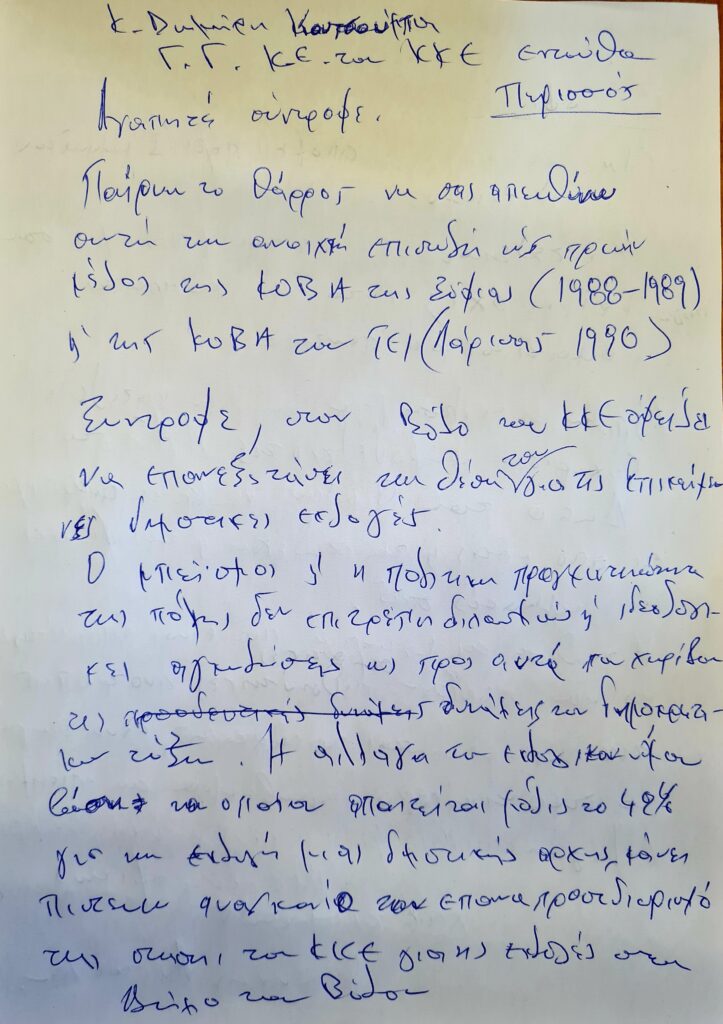 κ. Δημήτρη Κουτσούμπα
Γ.Γ. Κ.Ε. του ΚΚΕ ενταύθα
Περισσός
Αγαπητέ σύντροφε.
Παίρνω το θάρρος να σας απευθύνω
αυτή την ανοιχτή επιστολή ως πρώην
μέλος της ΚΟΒΑ της Σόφιας (1988-1989)
ή της ΚΟΒΑ του ΤΕΙ (Λάρισας 1990)
Σύντροφε, στον Βόλο το ΚΚΕ οφείλει
να επανεξετάσει την θέση του για τις επικείμε
νες δημοτικές εκλογές.
Ο μπεϊσμος ή η πολιτική πραγματικότητα
της πόλης δεν επιτρέπει ή ιδεολογι-
κές αγκυλώσεις ως προς αυτά που χωρίζουν
τις προοδευτικές δυνάμεις δυνάμεις του δημοκρατι-
κού τόξου. Η αλλαγή του εκλογικού νόμου
βάσει του οποίου απαιτείται μόλις το 42%
για την εκλογή μιας δημοτικής αρχής, κάνει
πιστεύω αναγκαίο τον επαναπροσδιορισμό
της στάσης του ΚΚΕ για τις εκλογές στον
Δήμο του Βόλου